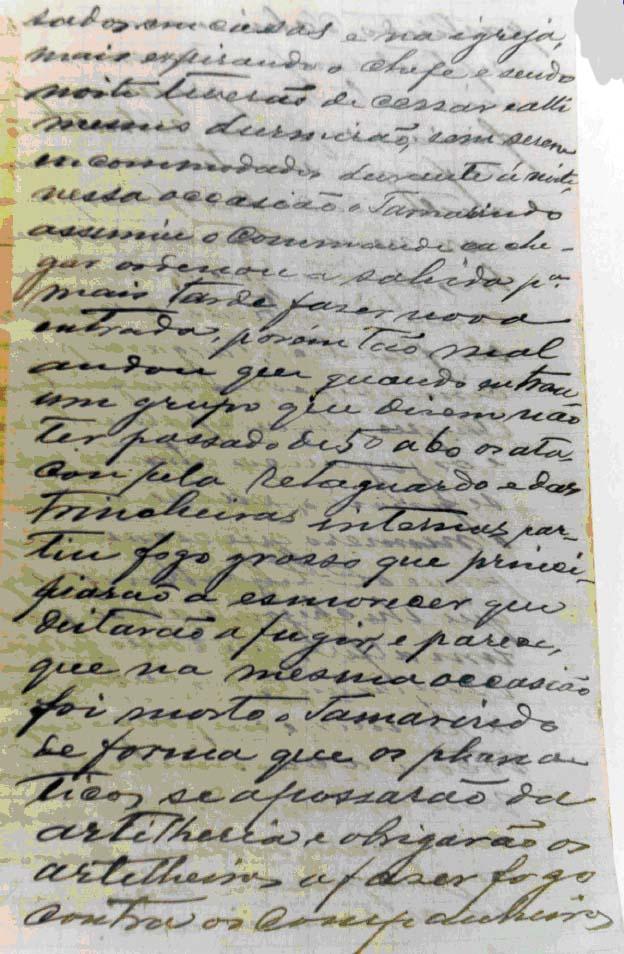 sados em casas e na igreja,
mais expirando o chefe e sendo
noite tiverão de cessar e alli
mesmo durmirão, sem serem
encommodados durante á noite,
nessa occasião o Tamarindo
assumiu o commando e ao che-
gar ordenou a sahida pª
mais tarde fazer nova
entrada, porém tão mal
andou que quando entrou
um grupo que dizem não
ter passado de 50 a 60 os ata-
cou pela retaguarda e das
trincheiras internas par-
tiu fogo grosso que princi-
piarão a esmorecer que
deitarão a fugir, e parece,
que na mesma occasião
foi morto o Tamarindo
de forma que os phana-
ticos se apossarão da
artilheria e obrigarão os
artilheiros a fazer fogo
contra os companheiros